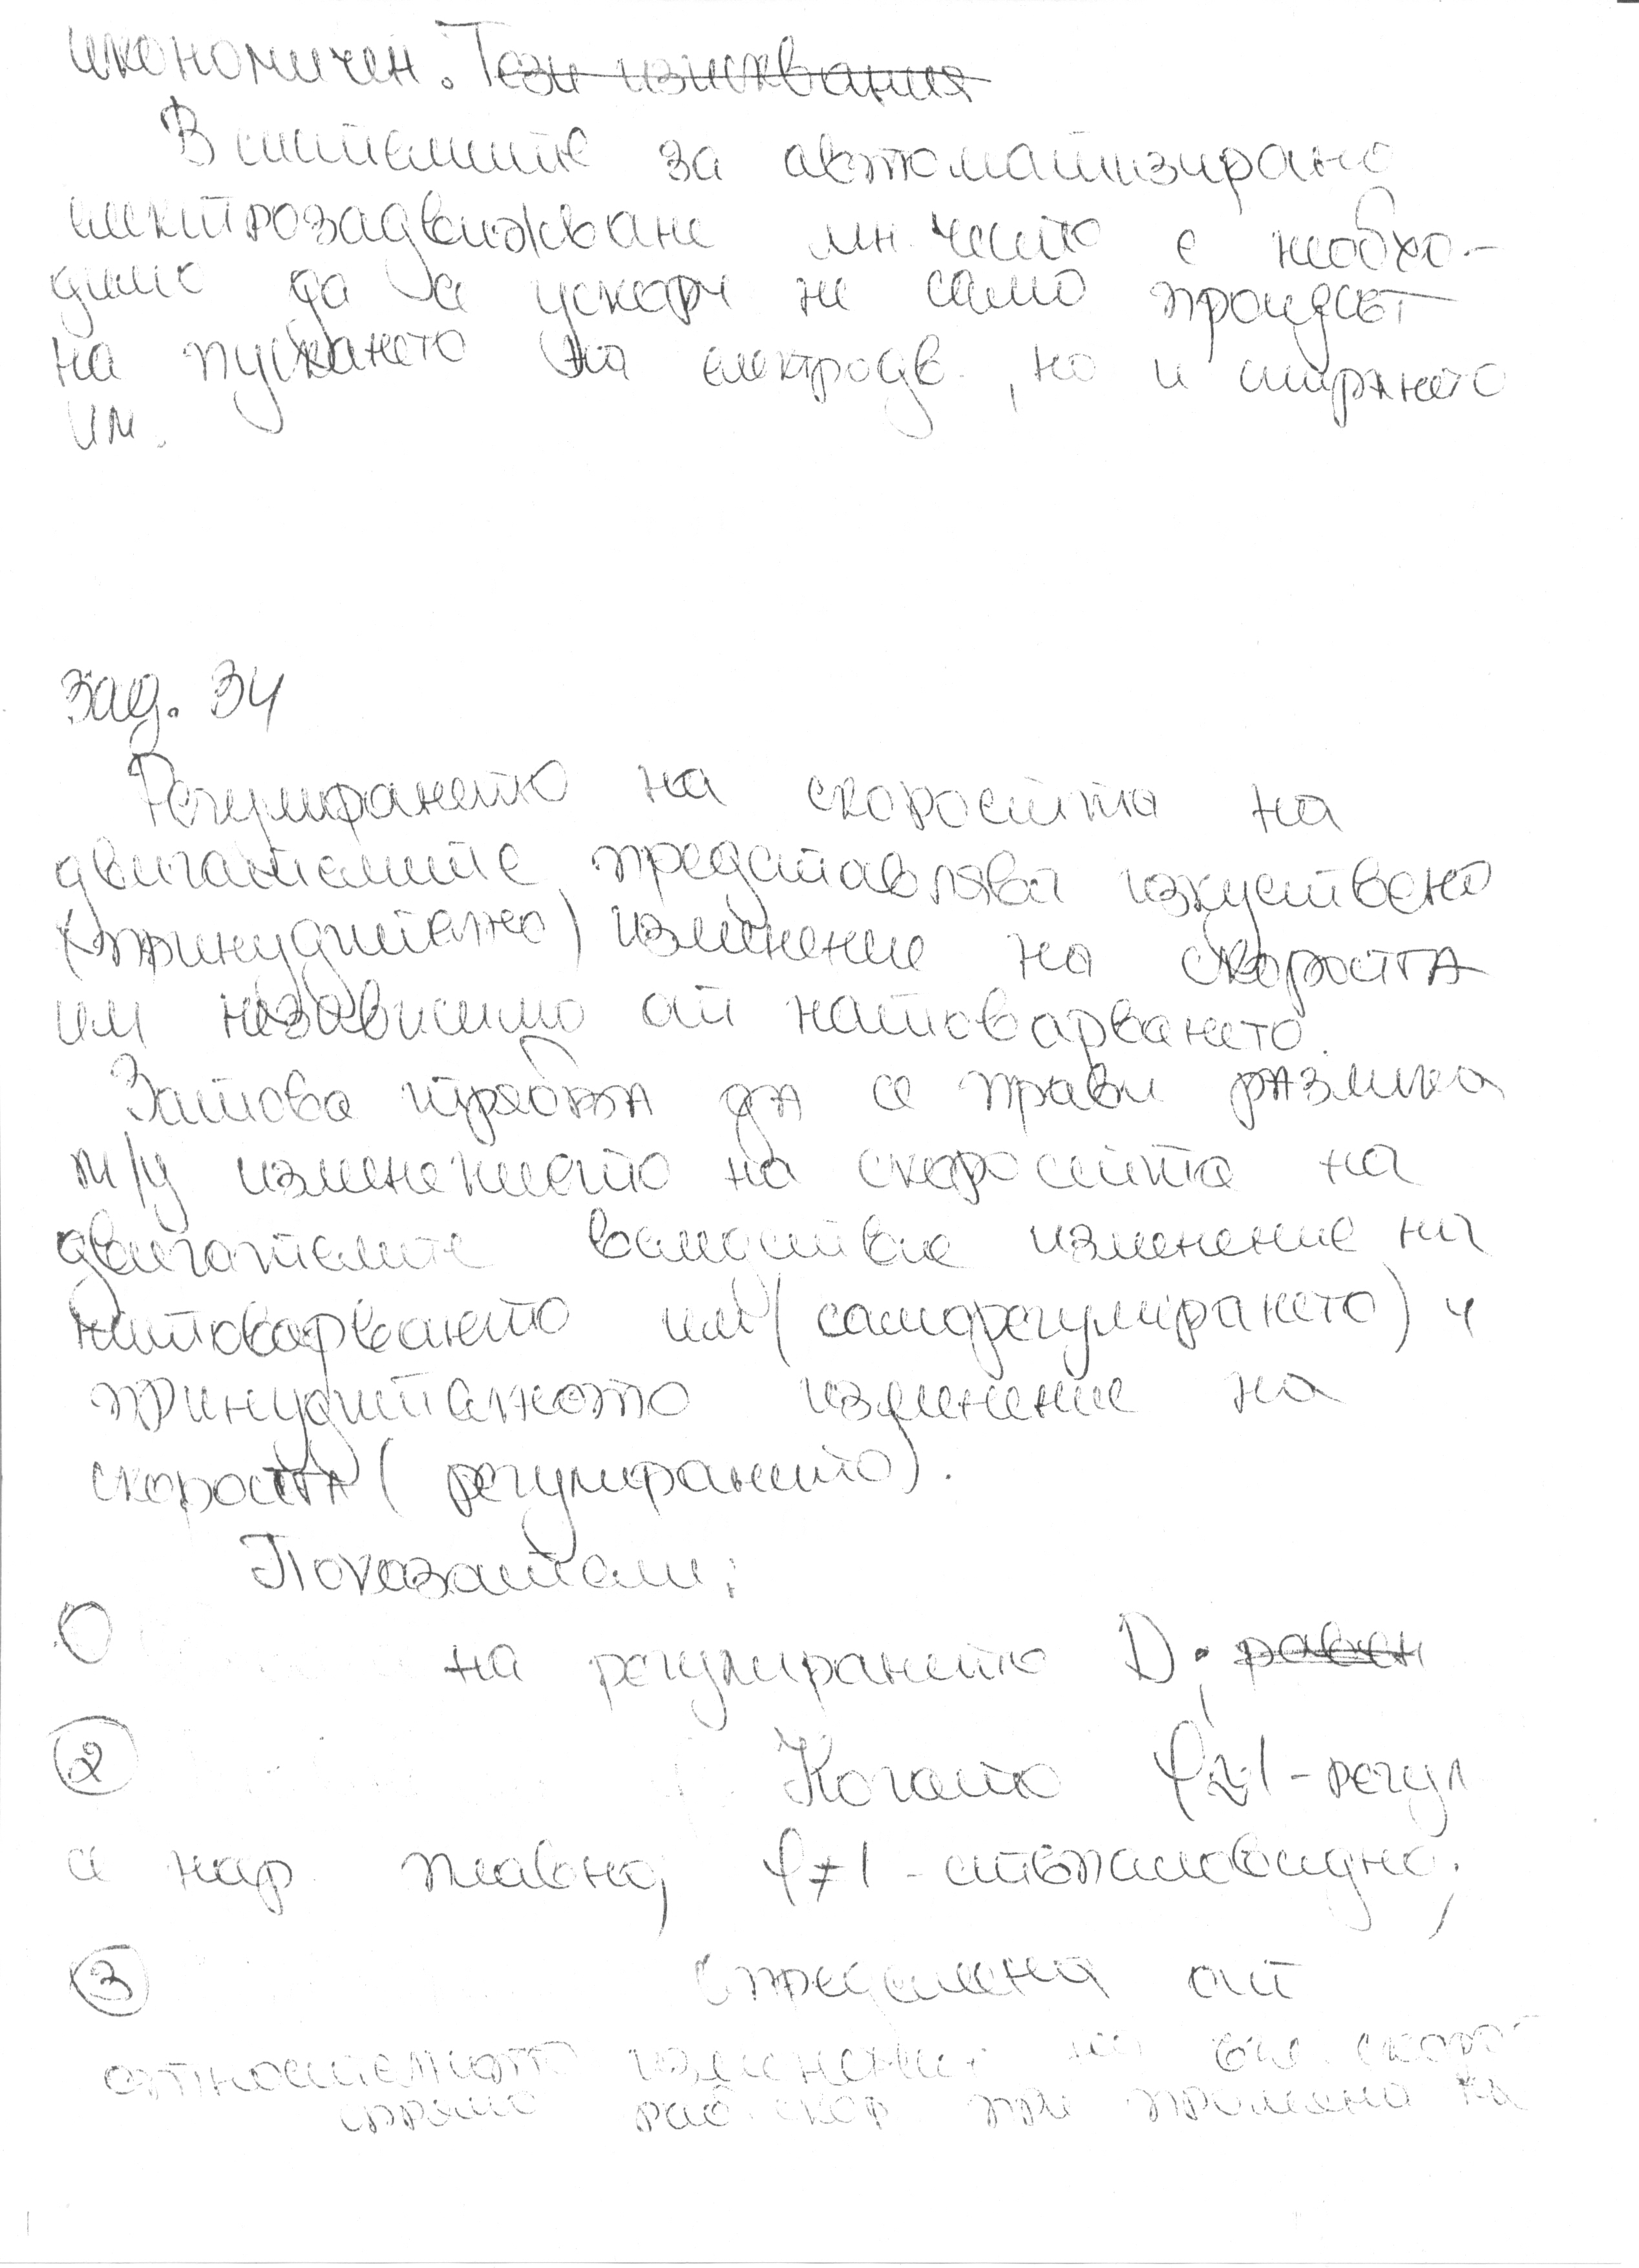 икономичен. Тези изисквания
В системите за автоматизирано
електрозадвижване мн. често е необхо-
димо да се ускори не само процесът
на пускането на електродв., но и спирането
им.
Зад. 34
Регулирането на скоростта на
двигателите представлява изкуствено
(принудително) изменение на скоростта
им независимо от натоварването.
Затова трябва да се прави разлика
м/у изменението на скоростта на
двигателите вследствие изменение на
натоварването им (саморегулирането) и
принудителното изменение на
скоростта (регулирането).
Показатели:
на регулирането D; равен
2 Когато φ≈1 - регул
се нар. плавно, φ≠1 - стъпаловидно;
3 Определена от
относителното изменение на ъгл. скорост
спрямо раб. скор при промяна на